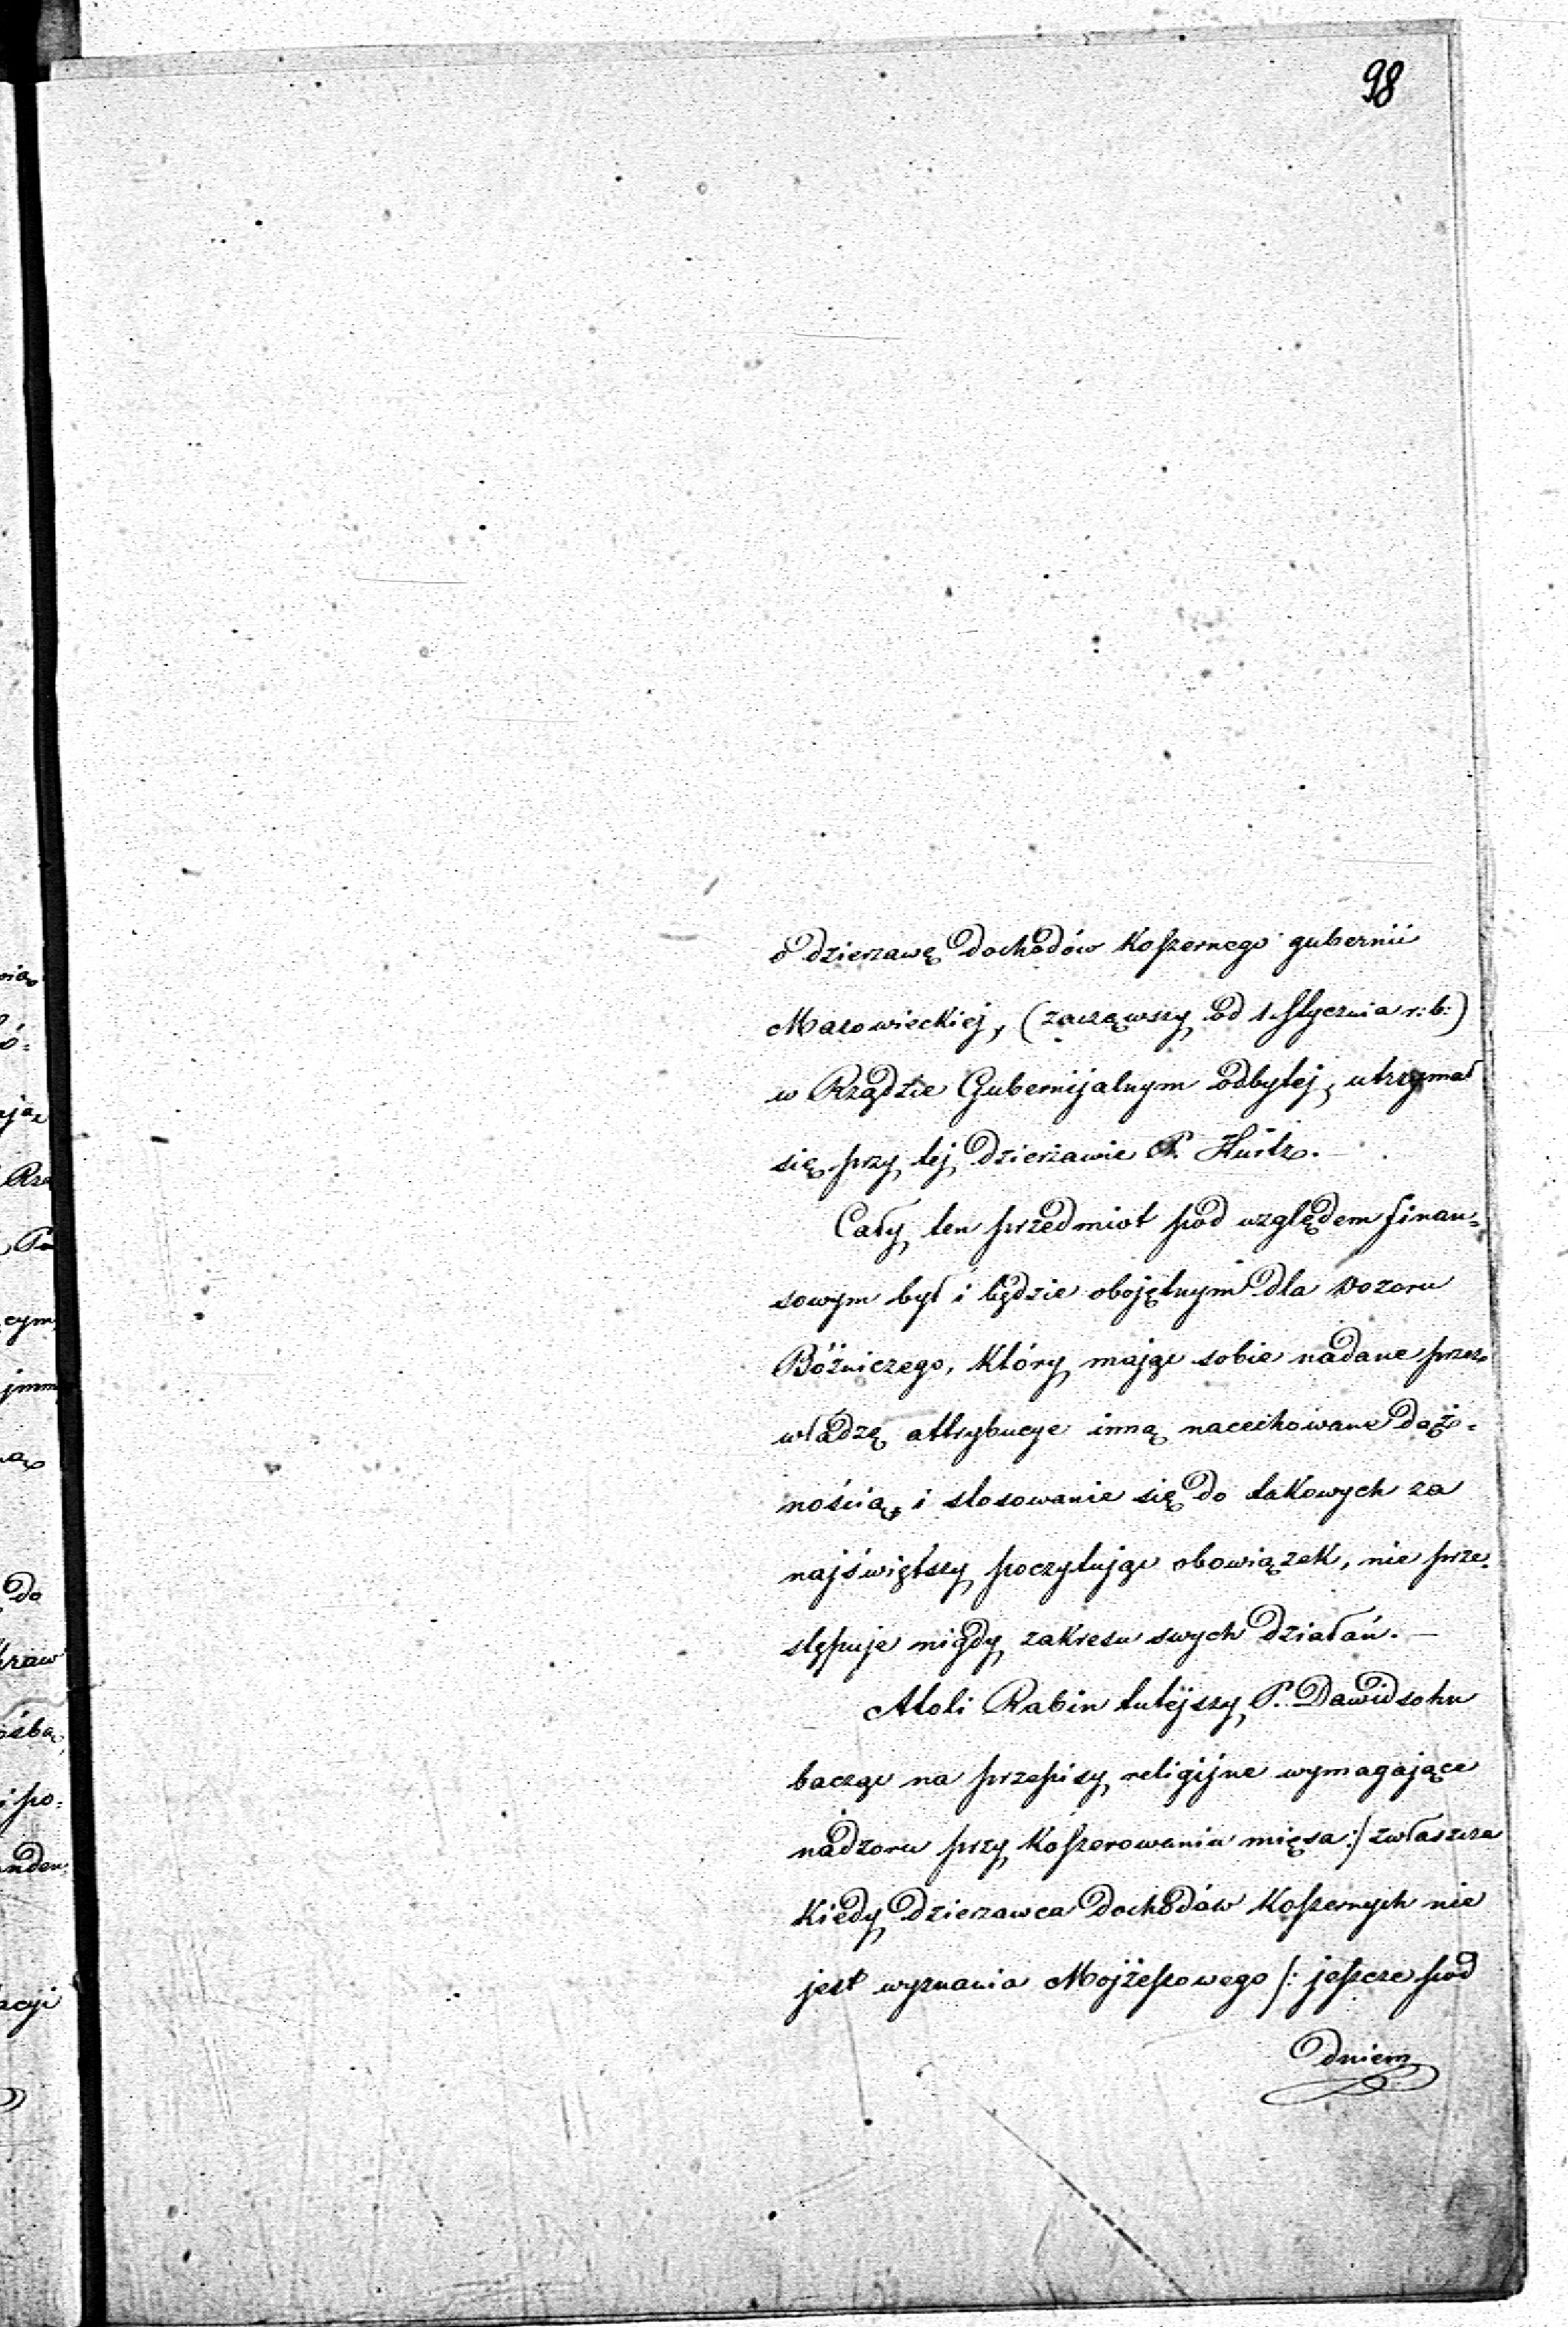 98
o dzierzawę dochodów Koszernego gubernii
Mazowieckiej, (zacząwszy od 1 Stycznia r: b:)
w Rządzie Gubernijalnym odbytej, utrzymał
się przy tej dzierżawie P.
Cały ten przedmiot pod względem finan=
sowym był i będzie obojętnym dla Dozoru
Bóźniczego, Który mając sobie nadane przez
władzę attrybucye inną nacechowane dąż-
nością, i stosowanie się do takowych za
najświętszy poczytując obowiązek, nie prze-
stępuje nigdy zakresu swych działań. —
Atoli Rabin tutejszy P. Dawidsohn
bacząc na przepisy religijne wymagające
nadzoru przy Koszerowaniu mięsa :/ zwłaszcza
Kiedy dzierzawca dochodów Koszernych nie
jest wyznania Mojżeszowego /: jeszcze pod
dniem
Rzą
cym
do
po: